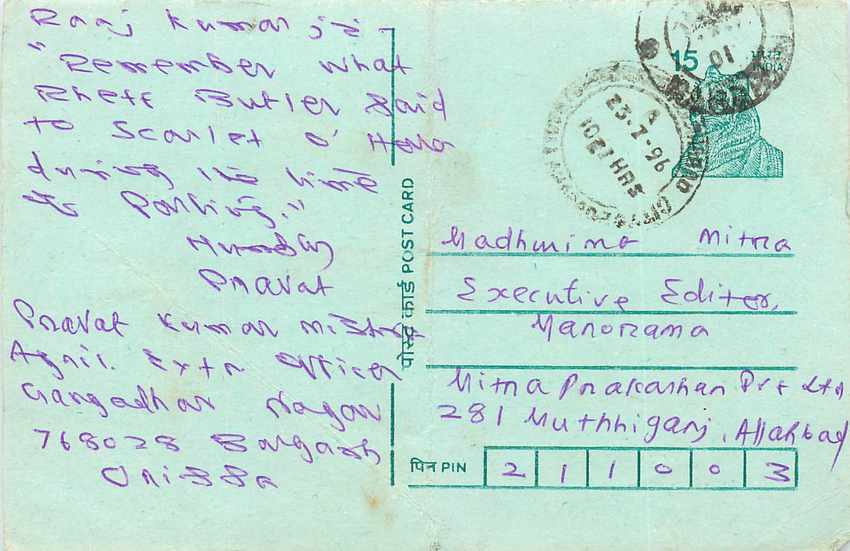 Raaj Kumar ji -
"Remember what
Rhett Butler said
to Scarlet O' Hara
during the time
of Parting."
Humbly
Pravat
Pravat Kumar Mishra
Agril. Extn Officer
Gangadhar Nagar
768028 Bargarh
Orissa
पोस्ट कार्ड POST CARD
15 भारत
INDIA
01
23.1.96
1021HRS
Madhurima Mitra
Executive Editor,
Manorama
Mitra Prakashan Pvt Ltd
281 Muthhiganj, Allahbad
पिन PIN 2 1 1 0 0 3